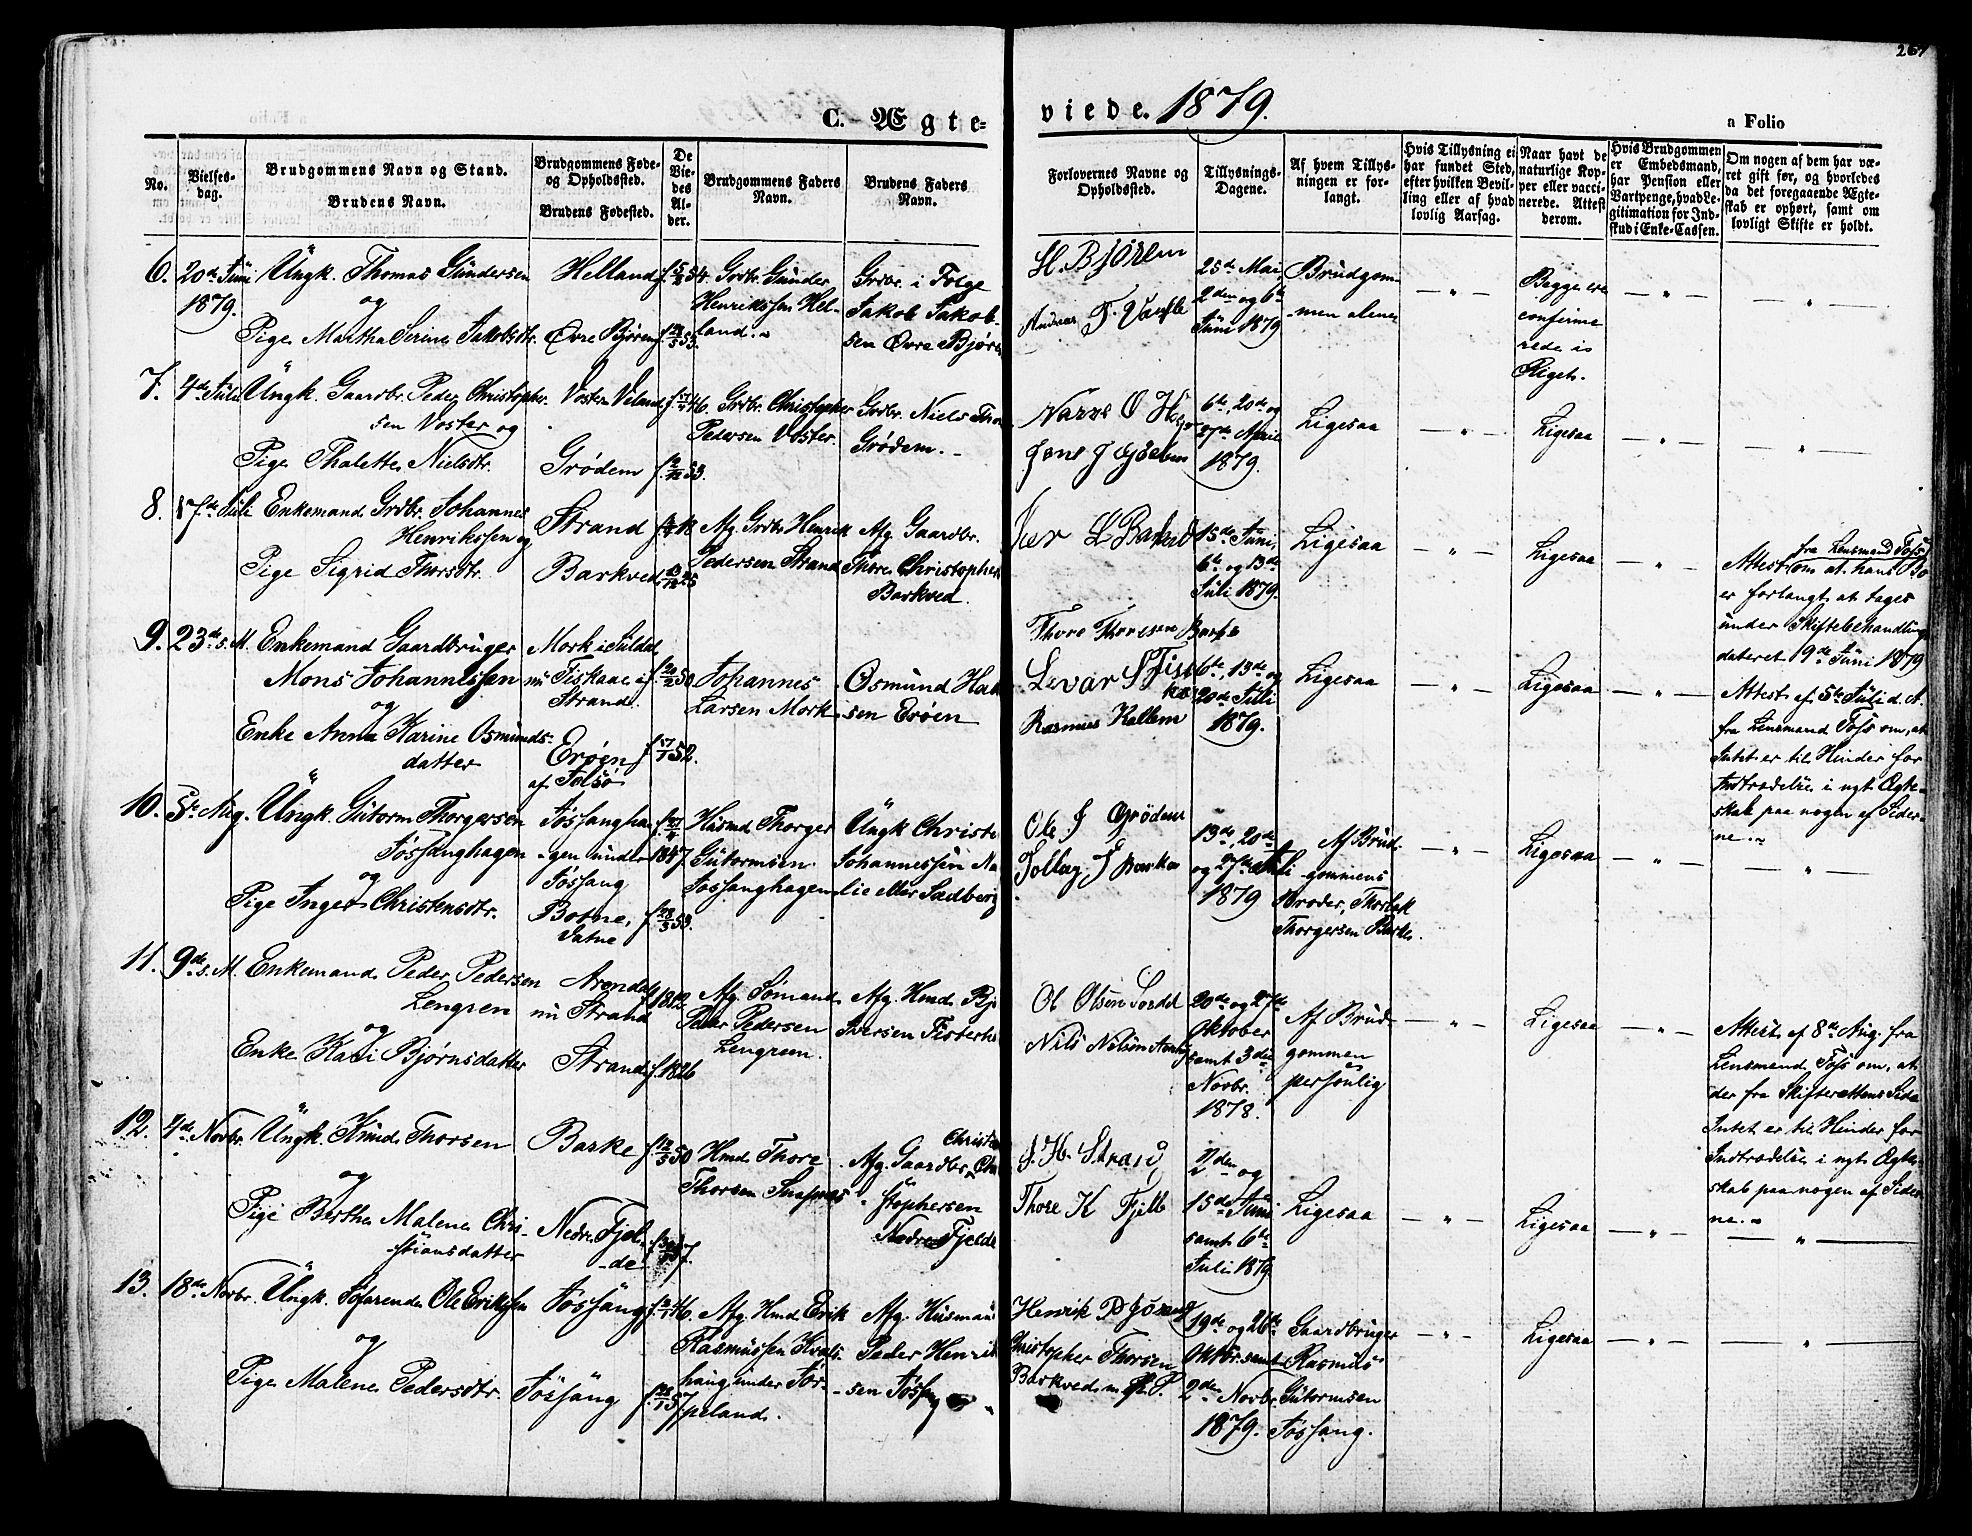 267
C. Ægte-
viede. 1879.
a Folio
No.
Vielses-
dag.
Brudgommens Navn og Stand.
Brudens Navn.
Brudgommens Føde-
og Opholdssted.
Brudens Fødested.
De
Vie-
des
Al-
der.
Brudgommens Faders
Navn.
Brudens Faders
Navn.
Forlovernes Navne og
Opholdssted.
Tillysnings-
Dagene.
Af hvem Tillys-
ningen er for-
langt.
Hvis Tillysning ei
har fundet Sted,
efter hvilken Bevil-
ling eller af hvad
lovlig Aarsag.
Naar havt de
naturlige Kop-
per eller vacci-
nerede. Attest
derom.
Hvis Brudgommen
er Embedsmand,
har Pension eller
Vartpenge, hvad Le-
gitimation for Ind-
skud i Enke-Cassen.
Om nogen af dem har væ-
ret gift før, og hvorledes
da det foregaaende Ægte-
skab er ophørt, samt om
lovligt Skifte er holdt.
6.
20de Juni
1879.
Ungk. Thomas Gundersen
og
Pige Martha Serine Jakobsdtr.
Helland
Øvre Bjøren
Grdbr. Gunder
Henriksen Hel-
land.
Grdbr. i Følge
Jakob Jakob-
sen Øvre Bjøre
H. Bjøren
25de Mai,
2den og 6te
Juni 1879
Brudgom-
men alene
Begge ere
confirme
rede i
Riget.
7.
4de Juli
Ungk. Gaardbr. Peder Christopher-
sen Voster og
Pige Thalette Nielsdtr.
Voster Veland
Grødem
Grdbr. Christopher
Pedersen Voster.
Grdbr. Niels
Grødem.
6te, 20de og
27de April
1879.
Ligesaa
Ligesaa
8.
17de Juli
Enkemand Grdbr. Johannes
Henrikssen og
Pige Sigrid Thorsdtr.
Strand
Barkved
Afg. Grdbr. Henrik
Pedersen Strand
Afg. Gaardbr.
Thore Christophers
Barkved.
15de Juni,
6te og 13de
Juli 1879.
Ligesaa
Ligesaa
fra Lensmand Foss
Attest om at hans Bo
er forlangt at tages
under Skiftebehandling
dateret 19de Juni 1879
9.
23de s. M.
Enkemand Gaardbruger
Mons Johannessen
og
Enke Anna Karine Osmunds-
datter
Mork i Suldal
nu Fiskaae af
Strand.
Erøen
af Jelsø
Johannes
Larsen Mork
Osmund
sen Erøen
Thore Thoresen
Rasmus Kallem
6te, 13de og
20de Juli
1879.
Ligesaa
Ligesaa
Attest af 5te Juli d. A.
fra Lensmand Foss om, at
Intet er til Hinder for
Indtrædelse i nyt Ægte-
skab paa nogen af Sider-
ne.
10.
5te Aug.
Ungk. Gutorm Thorgersen
Fossanghagen
og
Pige Inger Christensdtr.
Fossangha-
gen under
Fossang
Botne,
Vatne
1847.
Husmd. Thorger
Gutormsen
Fossanghagen
Ungk Christen
Johannessen
Ole J Grødem
13de, 20de
og 27de Juli
1879
Af Brud-
gommens
Broder,
Thorgersen
Ligesaa
11.
9de s. M.
Enkemand Peder Pedersen
Lengren
og
Enke Kari Bjørnsdatter
Arendal
nu Strand
Strand
f. 1826
Afg. Sømand
Peder Pedersen
Lengreen.
Afg. Hmd.
Iversen
Nils Nilsen
20de og 27de
Oktober
samt 3die
Novbr.
1878.
Af Brud-
gommen
personlig
Ligesaa
Attest af 8de Aug. fra
Lensmand Foss om, at
der fra Skifterettens Side
Intet er til Hinder for
Indtrædelse i nyt Ægte-
skab paa nogen af Sider-
ne.
12.
4de Novbr.
Ungk. Knud Thorsen
og
Pige Berthe Malene Chri-
stiansdatter
Barke
Nedre Fjel-
de
Hmd. Thore
Thorsen
Christian
Afg. Gaardbr.
stophersen
Nedre Fjelde
Thore K Fjelde
2den og
15de Juni
samt 6te
Juli 1879
Ligesaa
Ligesaa
13.
18de Novbr.
Ungk. Søfarende Ole Erikssen
og
Pige Malene Pedersdtr.
Fossang
Fossang
Afg. Hmd. Erik
Rasmussen Kvals-
haug under Jør-
peland.
Afg. Husmand
Peder Henrik-
sen Fossang
Henrik
Christopher Thorsen
Barkved
19de og 26de
Oktbr. samt
2den Novbr.
1879.
Gaardbruger
Rasmus
Gutormsen
Fossang.
Ligesaa